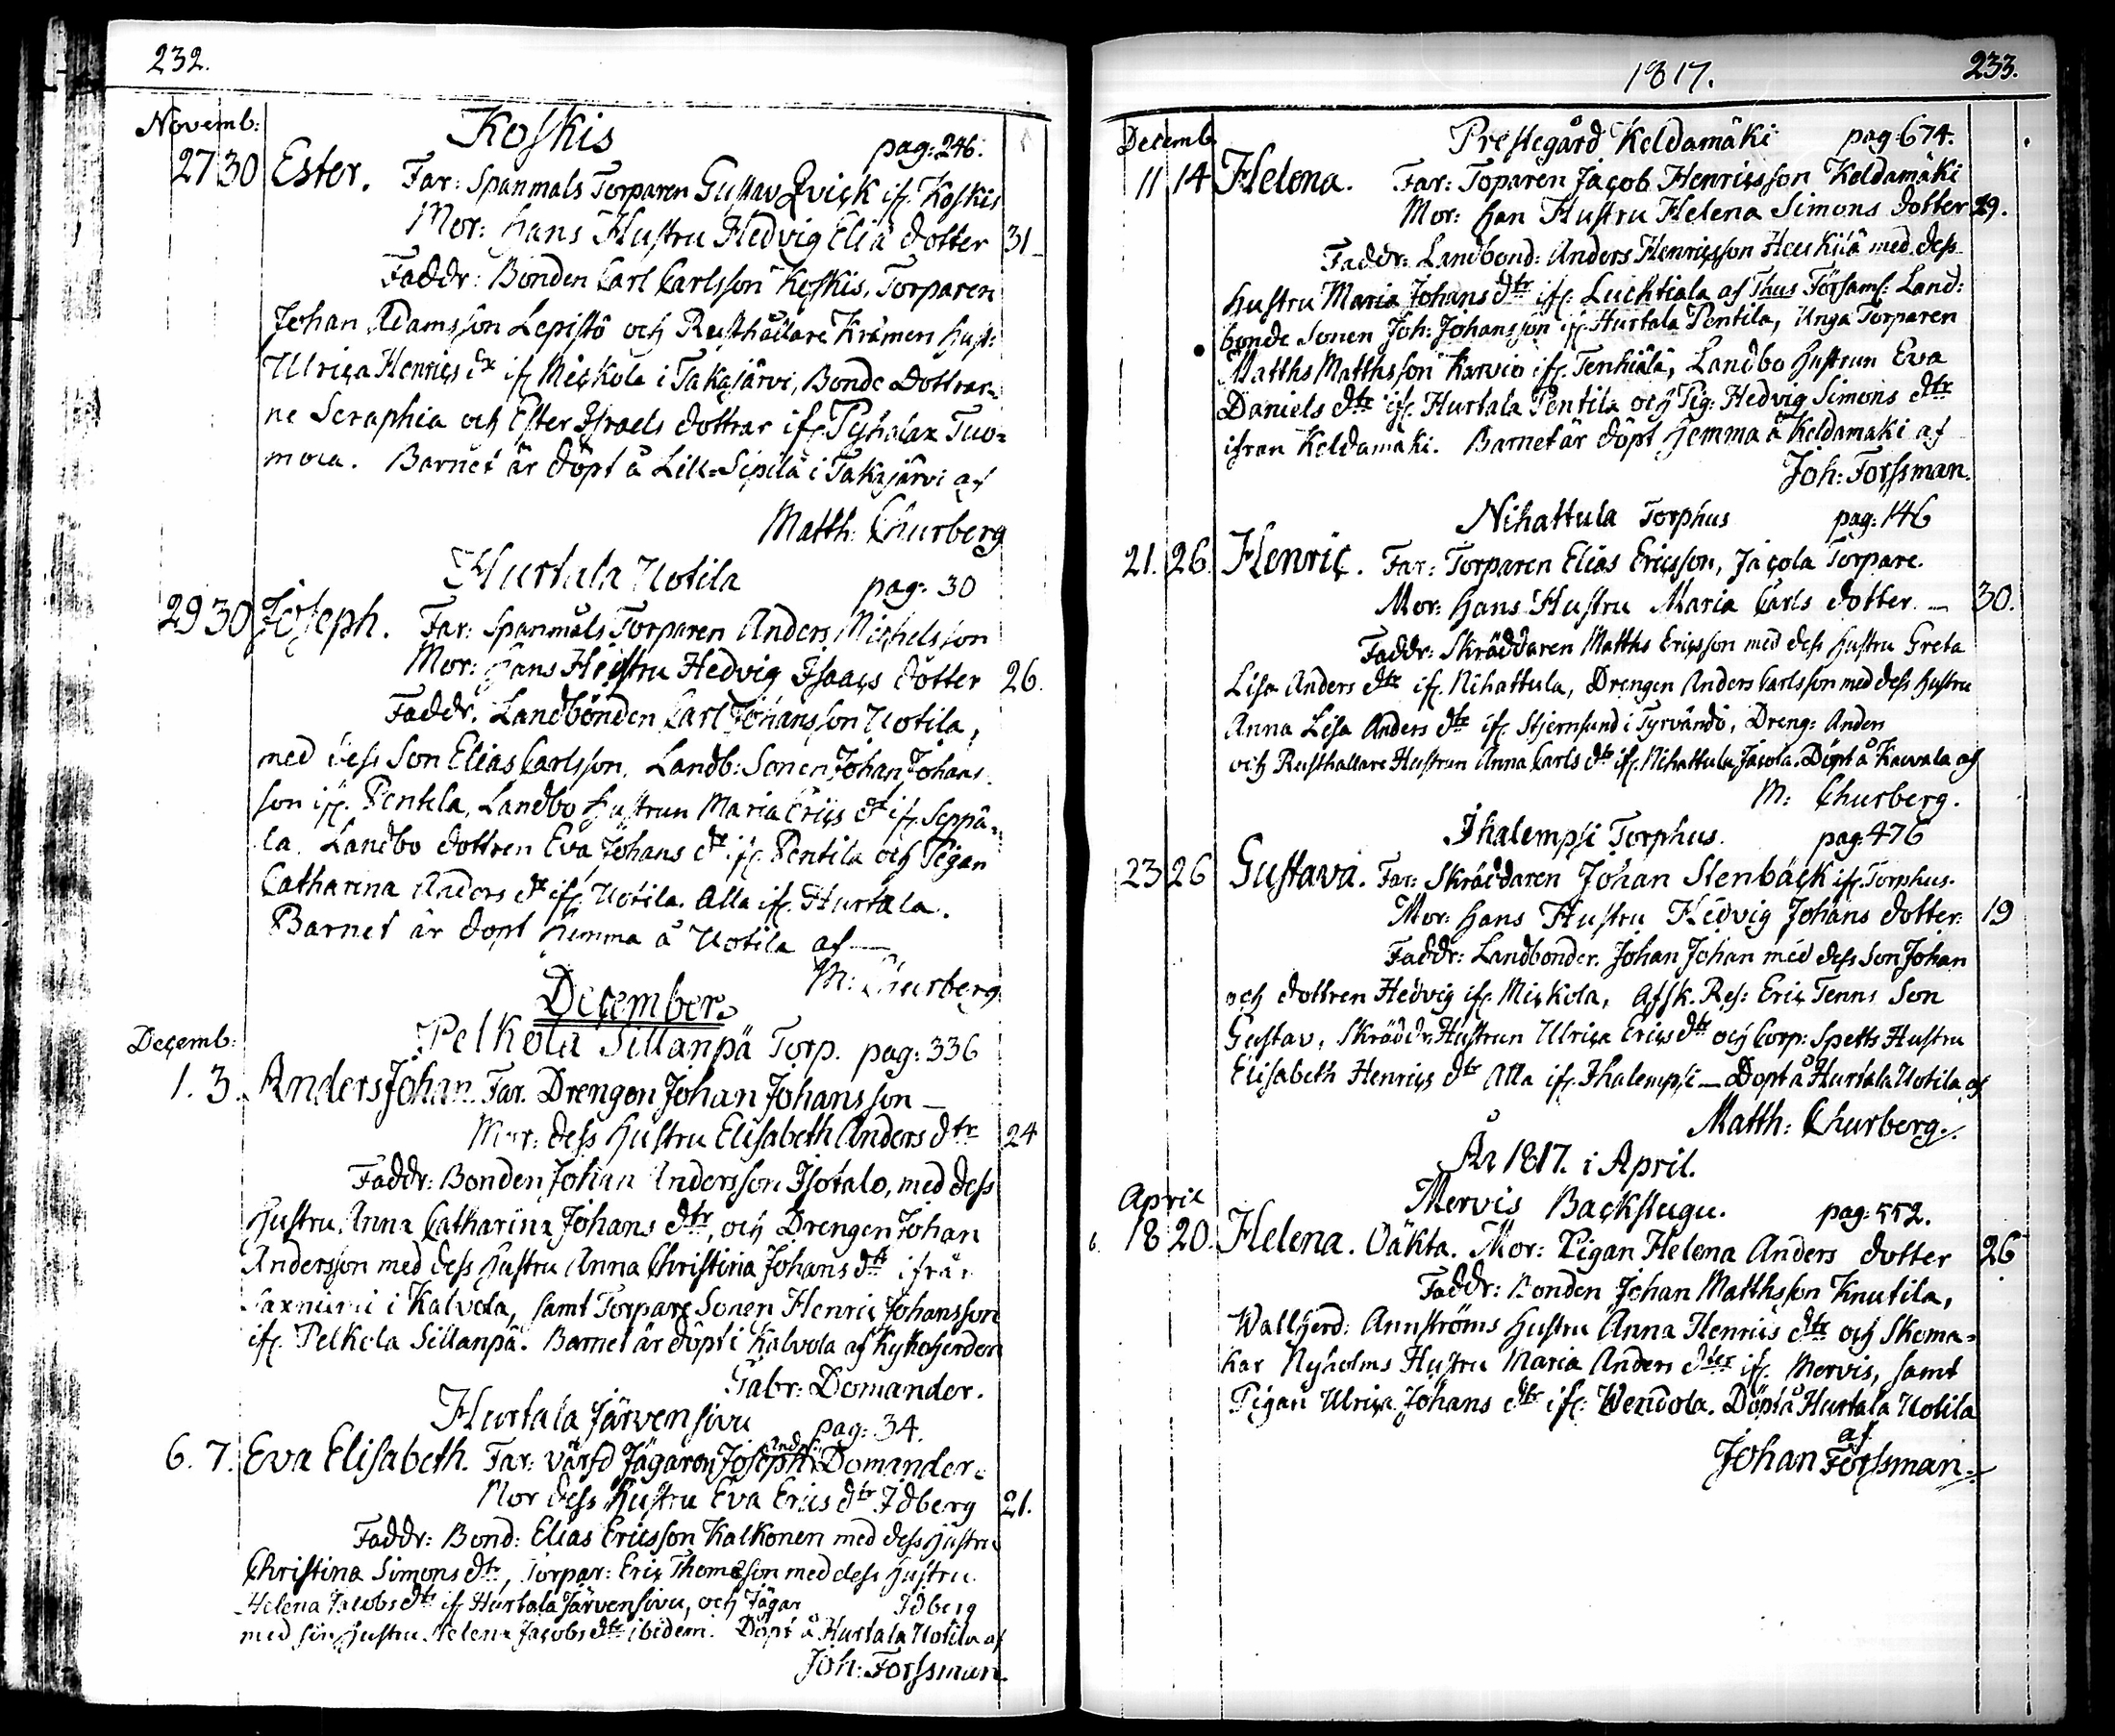 232.
Novemb:
Koskis pag: 246.
27 30 Ester. Far: Spanmåls Torparen Gustav Qvick ifr. Koskis
Mor: hans Hustru Hedvig Eliæ dotter 31
Faddr: Bonden Carl Carlsson Koskis, Torparen
Johan Adamsson Lepistö och Rusthållare Krämen Hust:
Ulrica Henrics dr ifr Mickola i Takajärvi, Bonde Dottrar-
ne Seraphia och Ester Israels dottrar ifr. Tyhalax Tuo=
mola. Barnet är döpt å Lill-Sipilä i Takajärvi af
Matth: Churberg
Hurtala Uotila pag: 30
29 30 Joseph. Far: Spanmåls Torparen Anders Michelsson
Mor: hans Hustru Hedvig Isaacs dotter 26.
Faddr. Landbonden Carl Johansson Uotila,
med dess Son Elias Carlsson, Landb: Sonen Johan Johans
son ifr. Pentila, Landbo hustrun Maria Erics dr ifr. Seppä=
la. Landbo dottren Eva Johans dr ifr. Pentila och Pigan
Catharina Anders dr ifr. Uotila. Alla ifr. Hurtala.
Barnet är döpt hemma å Uotila af
M: Churberg
December.
Decemb:
Pelkola Sillanpä Torp. pag: 336
1. 3. Anders Johan. Far. Drengen Johan Johansson
Mor: dess Hustru Elisabeth Anders dtr 24
Faddr: Bonden Johan Andersson Isotalo, med dess
Hustru Anna Catharina Johans dtr, och Drengen Johan
Andersson med dess Hustru Anna Christina Johans dtr ifrån
i Kalvola, samt Torpare Sonen Henric Johansson
ifr. Pelkola Sillanpä. Barnet är döpt i Kalvola af Kyrkoherden
Gabr: Domander.
Hurtala Järvensivu pag: 34.
6. 7. Eva Elisabeth. Far: värfd Jägaren Joseph Anders: Domander.
Mor dess Hustru Eva Erics dtr Idberg 21.
Faddr: Bond: Elias Ericsson Kalkonen med dess Hustru
Christina Simons dtr, Torpar: Eric Thomæson med dess Hustru
Helena Jacobs dtr ifr Hurtala Järvensivu, och Jägar Idberg
med sin Hustru Helena Jacobs dtr ibidem. Döpt å Hurtala Uotila af
Joh: Forssman.
1817. 233.
Decemb
Prestegård Keldamäki pag 674.
11 14 Helena. Far: Toparen Jacob Henricsson Keldamäki
Mor: han Hustru Helena Simons dotter 29.
Faddr: Landbond: Anders Henricsson Heiskilä med dess
Hustru Maria Johans dtr ifr. Luchtiala af Thus Församl: Land:
bonde Sonen Joh: Johansson ifr Hurtala Pentila, Unga Torparen
Matths Matthsson Karvio ifr. Tenhiälä, Landbo Hustrun Eva
Daniels dtr ifr. Hurtala Pentila och Pig: Hedvig Simons dtr
ifran Keldamäki. Barnet är döpt hemma å Keldamaki af
Joh: Forssman.
Nihattula Torphus pag: 146
21. 26. Henric. Far: Torparen Elias Ericsson, Jacola Torpare.
Mor: hans Hustru Maria Carls dotter. 30.
Faddr: Skräddaren Matths Ericsson med dess Hustru Greta
Lisa Anders dtr ifr. Nihattula, Drengen Anders Carlsson med dess Hustru
Anna Lisa Anders dtr ifr. Stjernsund i Tyrvändö, Dreng: Anders
och Rusthallare Hustrun Anna Carls dtr ifr. Nihattula Jacola. Döpt å Kauvala af
M: Churberg.
Ihalempi Torphus. pag: 476
23 26 Gustava. Far: Skräddaren Johan Stenbäck ifr. Torphus.
Mor: hans Hustru Hedvig Johans dotter: 19
Faddr: Landbonden Johan Johan med dess Son Johan
och dottren Hedvig ifr. Mickola, Afsk. Res: Eric Tenns Son
Gustav, Skräddr Hustrun Ulrica Erics dtr och Corp: Spetts Hustru
Elisabeth Henrics dtr Alla ifr. Ihalempi Dopt å Hurtala Uotila af
Matth: Churberg.
År 1817. i April.
April
Mervis Backstugu. pag: 552.
6. 18 20. Helena. Oäkta. Mor: Pigan Helena Anders dotter 26
Faddr: Bonden Johan Matthsson Knutila,
Wallherd: Annströms hustru Anna Henrics dtr och Skoma=
kar Nyholms Hustru Maria Anders dter ifr. Mervis, samt
Pigan Ulrica Johans dtr ifr. Wendola. Döpt å Hurtala Uotila
af
Johan Forssman.